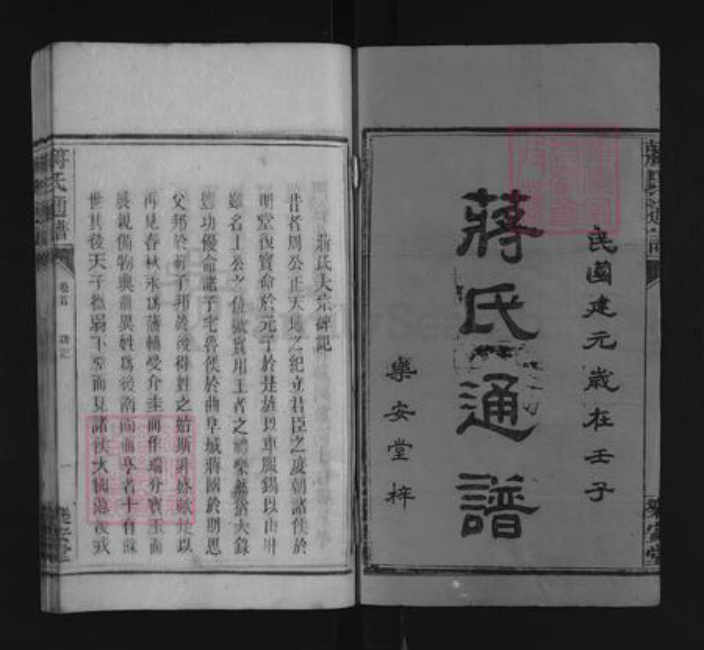 民國建元歲在壬子
蔣氏通譜
樂安堂梓
蔣氏通譜
樂安堂
蔣氏大宗碑記
昔者周公正天地之紀立君臣之度朝諸侯於
明堂復寶命於元子於是雄以車服錫以山川
名上公之位 實用王者之禮樂 大錄
豐功優命 子宅魯侯於曲阜城蔣國於期思
父邦於前子邦於後得姓之始斯 盛 以
再見春秋永為藩輔受介圭而作瑞分寶玉而
展親備物典 異姓為後南面 者十有
世其後天子微弱下堂而見諸侯大國
蔣氏通譜
卷首
碑記
一
樂安堂